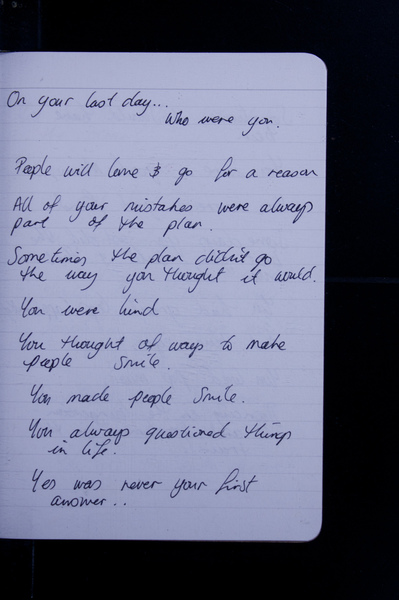 On your last day...
Who were you.
People will come & go for a reason
All of your mistakes were always
part of the plan.
Sometimes the plan didn't go
the way you thought it would.
You were kind
You thought of ways to make
people smile.
You made people smile.
You always questioned things
in life.
Yes was never your first
answer..